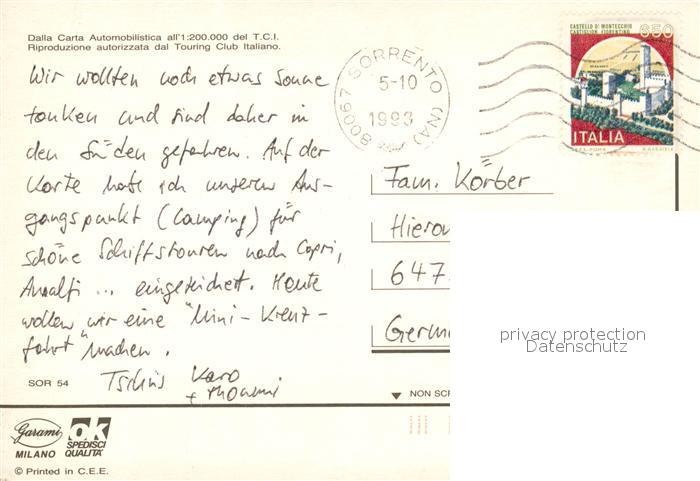 Dalla Carta Automobilistica all'1:200.000 del T.C.I.
Riproduzione autorizzata dal Touring Club Italiano.
CASTELLO DI MONTECCHIO
CASTIGLION FIORENTINO
650
ITALIA
80067 SORRENTO (NA)
5-10
1993
Wir wollten noch etwas Sonne
tanken und sind daher in
den Süden gefahren. Auf der
Karte habe ich unseren Aus-
gangspunkt (Camping) für
schöne Schiffstouren nach Capri,
Amalfi ... eingezeichnet. Heute
wollen wir eine "Mini-Kreuz-
fahrt" machen.
Tschüs Karo
+
Fam. Körber
Hieron
647
Germ
privacy protection
Datenschutz
SOR 54
NON SCR
Garami
MILANO
ok
SPEDISCI
QUALITÀ
© Printed in C.E.E.